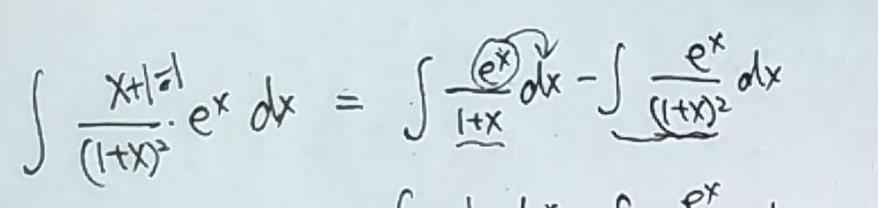 ∫ (x+1-1)/(1+x)² · eˣ dx = ∫ eˣ/(1+x) dx - ∫ eˣ/((1+x)² dx